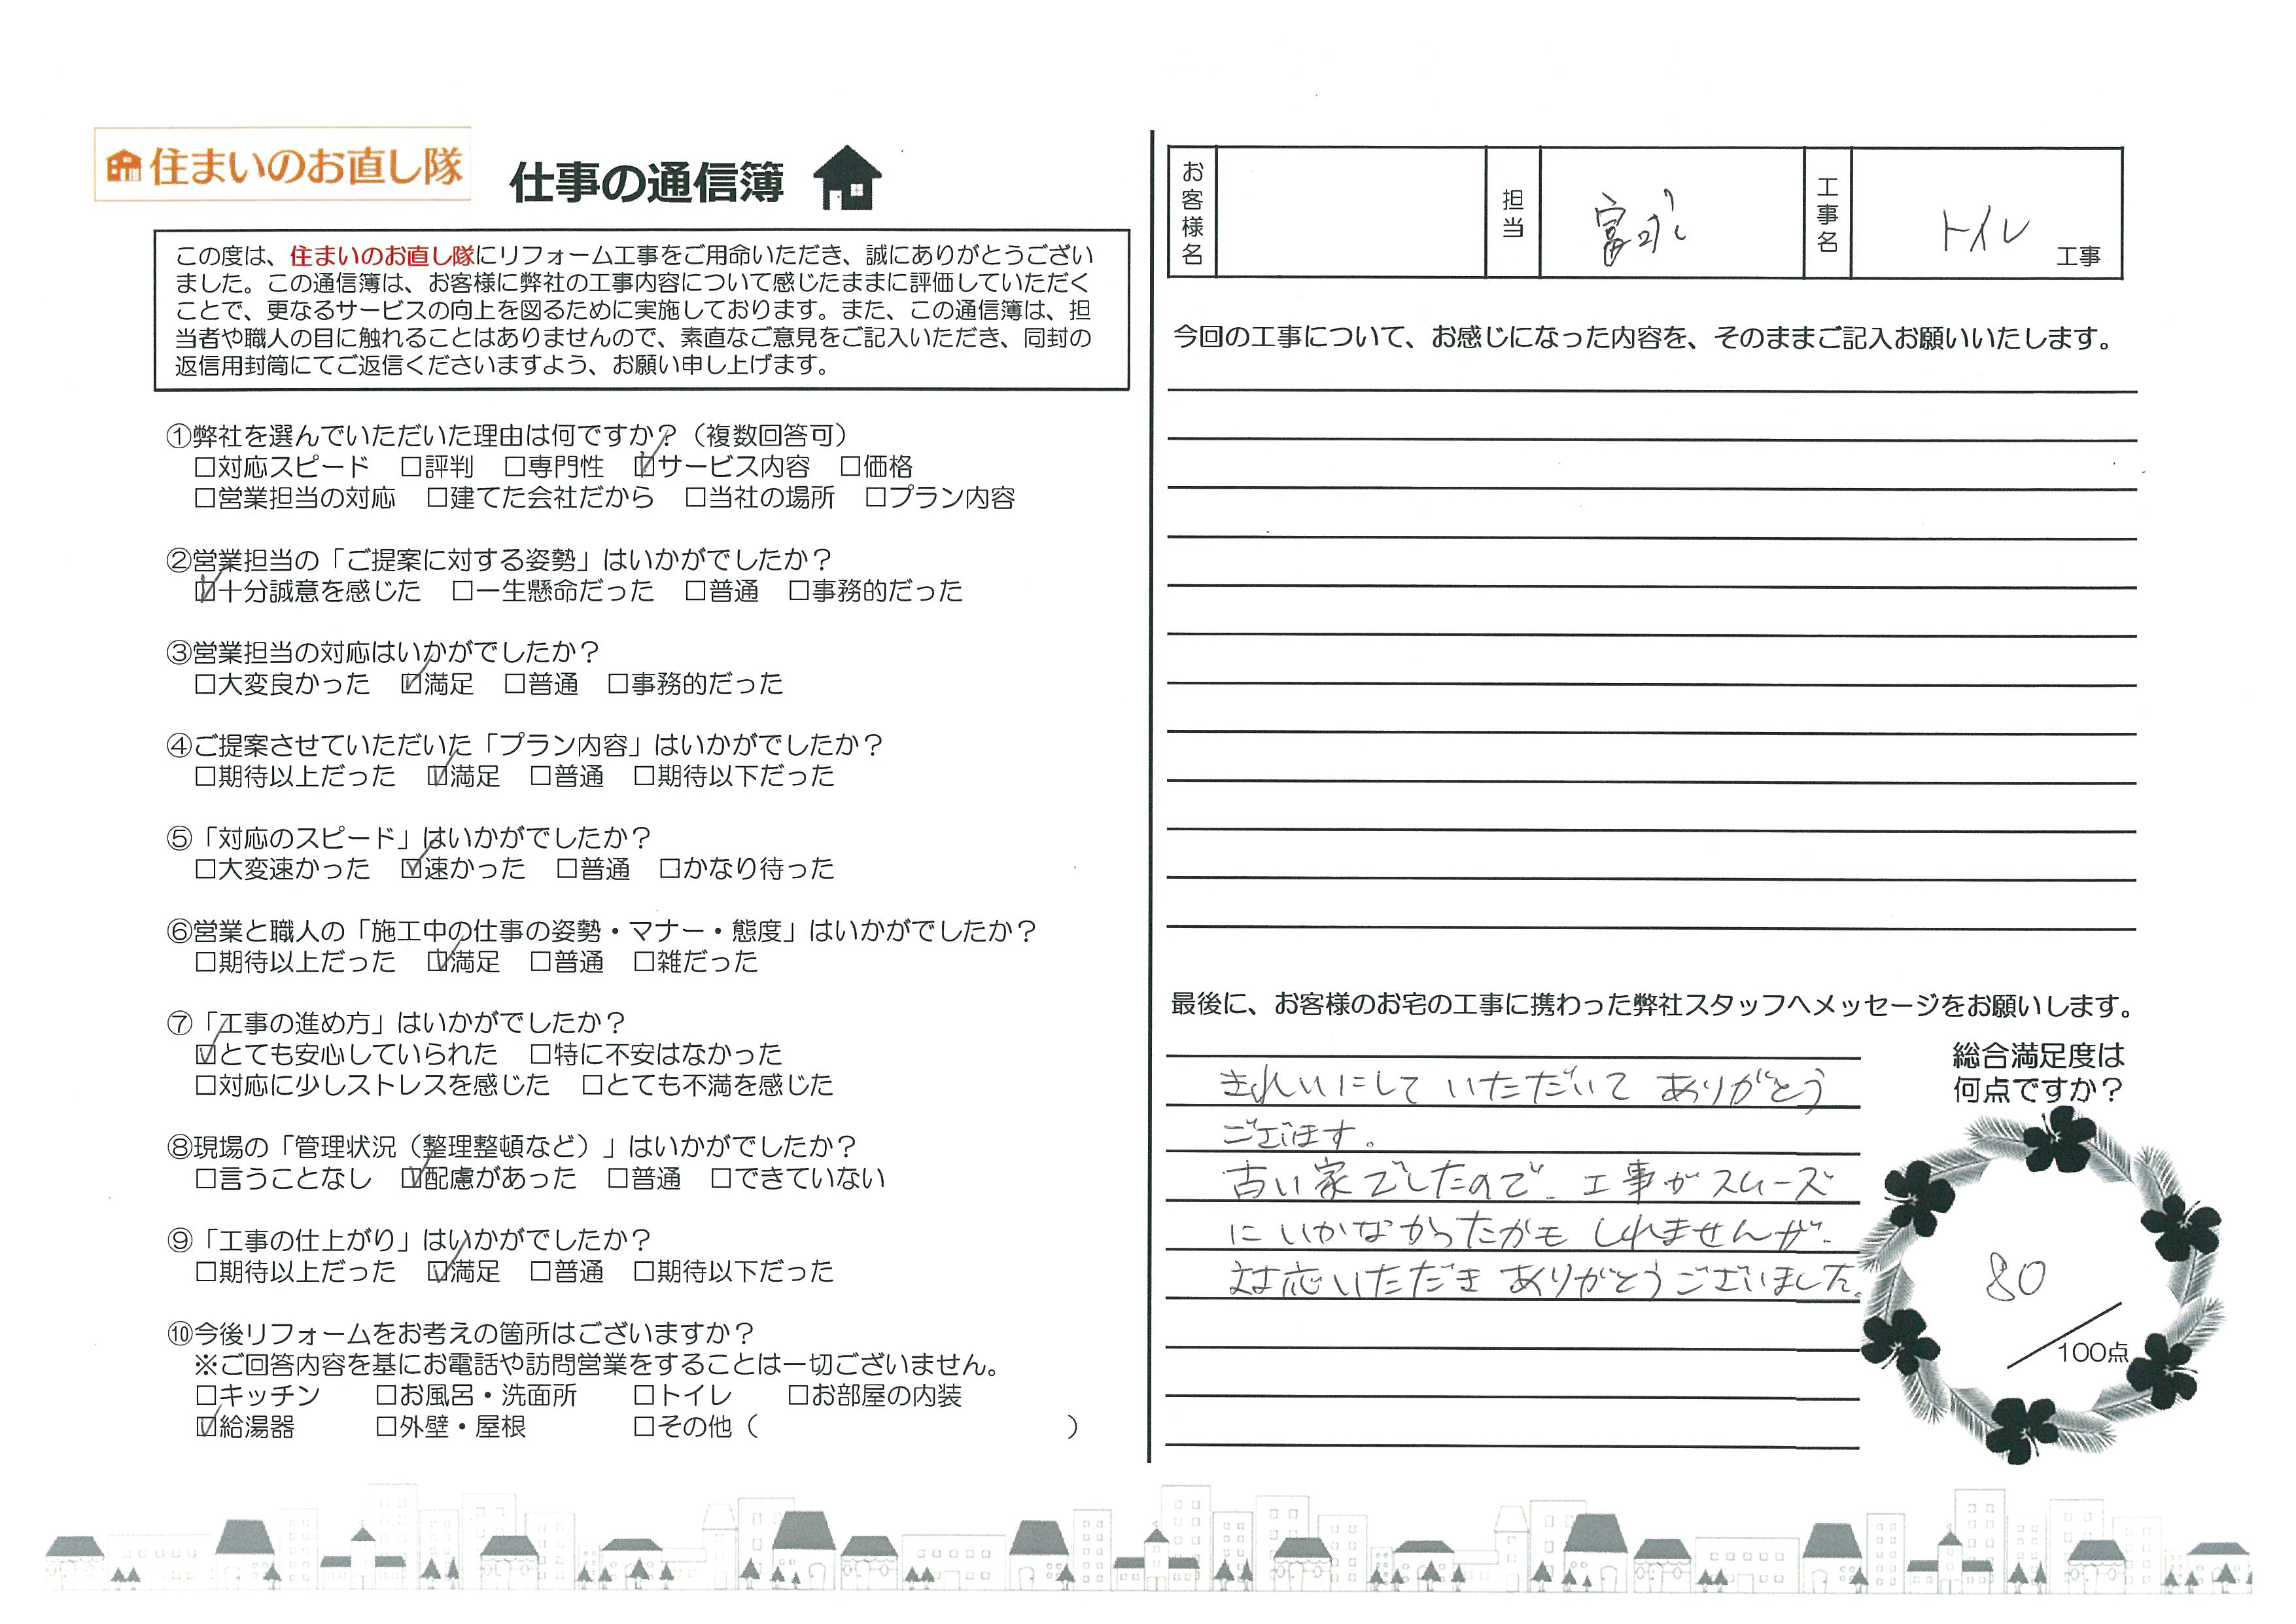 住まいのお直し隊
仕事の通信簿
この度は、住まいのお直し隊にリフォーム工事をご用命いただき、誠にありがとうござい
ました。この通信簿は、お客様に弊社の工事内容について感じたままに評価していただく
ことで、更なるサービスの向上を図るために実施しております。また、この通信簿は、担
当者や職人の目に触れることはありませんので、素直なご意見をご記入いただき、同封の
返信用封筒にてご返信くださいますよう、お願い申し上げます。
①弊社を選んでいただいた理由は何ですか？（複数回答可）
□対応スピード □評判 □専門性 ☑サービス内容 □価格
□営業担当の対応 □建てた会社だから □当社の場所 □プラン内容
②営業担当の「ご提案に対する姿勢」はいかがでしたか？
☑十分誠意を感じた □一生懸命だった □普通 □事務的だった
③営業担当の対応はいかがでしたか？
□大変良かった ☑満足 □普通 □事務的だった
④ご提案させていただいた「プラン内容」はいかがでしたか？
□期待以上だった ☑満足 □普通 □期待以下だった
⑤「対応のスピード」はいかがでしたか？
□大変速かった ☑速かった □普通 □かなり待った
⑥営業と職人の「施工中の仕事の姿勢・マナー・態度」はいかがでしたか？
□期待以上だった ☑満足 □普通 □雑だった
⑦「工事の進め方」はいかがでしたか？
☑とても安心していられた □特に不安はなかった
□対応に少しストレスを感じた □とても不満を感じた
⑧現場の「管理状況（整理整頓など）」はいかがでしたか？
□言うことなし ☑配慮があった □普通 □できていない
⑨「工事の仕上がり」はいかがでしたか？
□期待以上だった ☑満足 □普通 □期待以下だった
⑩今後リフォームをお考えの箇所はございますか？
※ご回答内容を基にお電話や訪問営業をすることは一切ございません。
□キッチン □お風呂・洗面所 □トイレ □お部屋の内装
☑給湯器 □外壁・屋根 □その他（ ）
お客様名 担当 工事名 トイレ 工事
今回の工事について、お感じになった内容を、そのままご記入お願いいたします。
最後に、お客様のお宅の工事に携わった弊社スタッフへメッセージをお願いします。
きれいにして いただいて ありがとう
ございます。
古い家でしたので、工事がスムーズ
にいかなかったかも しれませんが、
対応いただき ありがとうございました。
総合満足度は
何点ですか？
80
100点